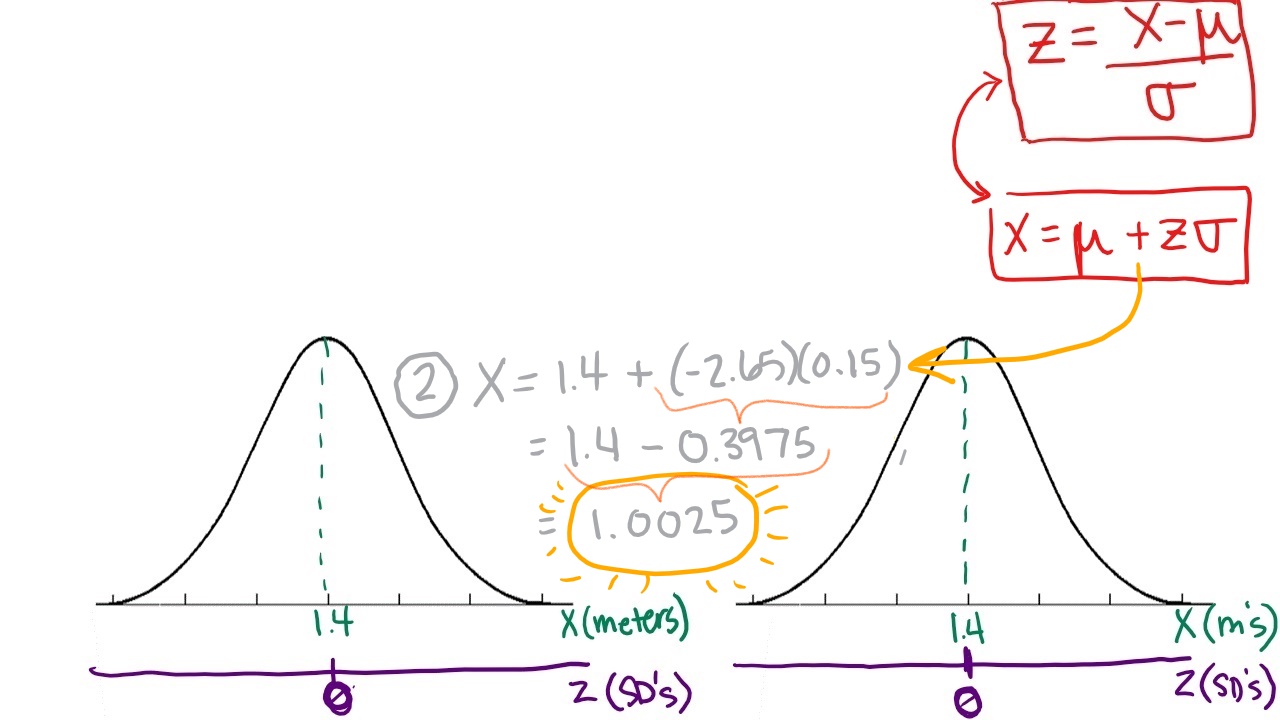 z = x-μ
σ
x = μ + zσ
② X = 1.4 + (-2.65)(0.15)
= 1.4 - 0.3975
= 1.0025
1.4 X (meters)
0 Z (SD's)
1.4 X (m's)
0 Z (SD's)